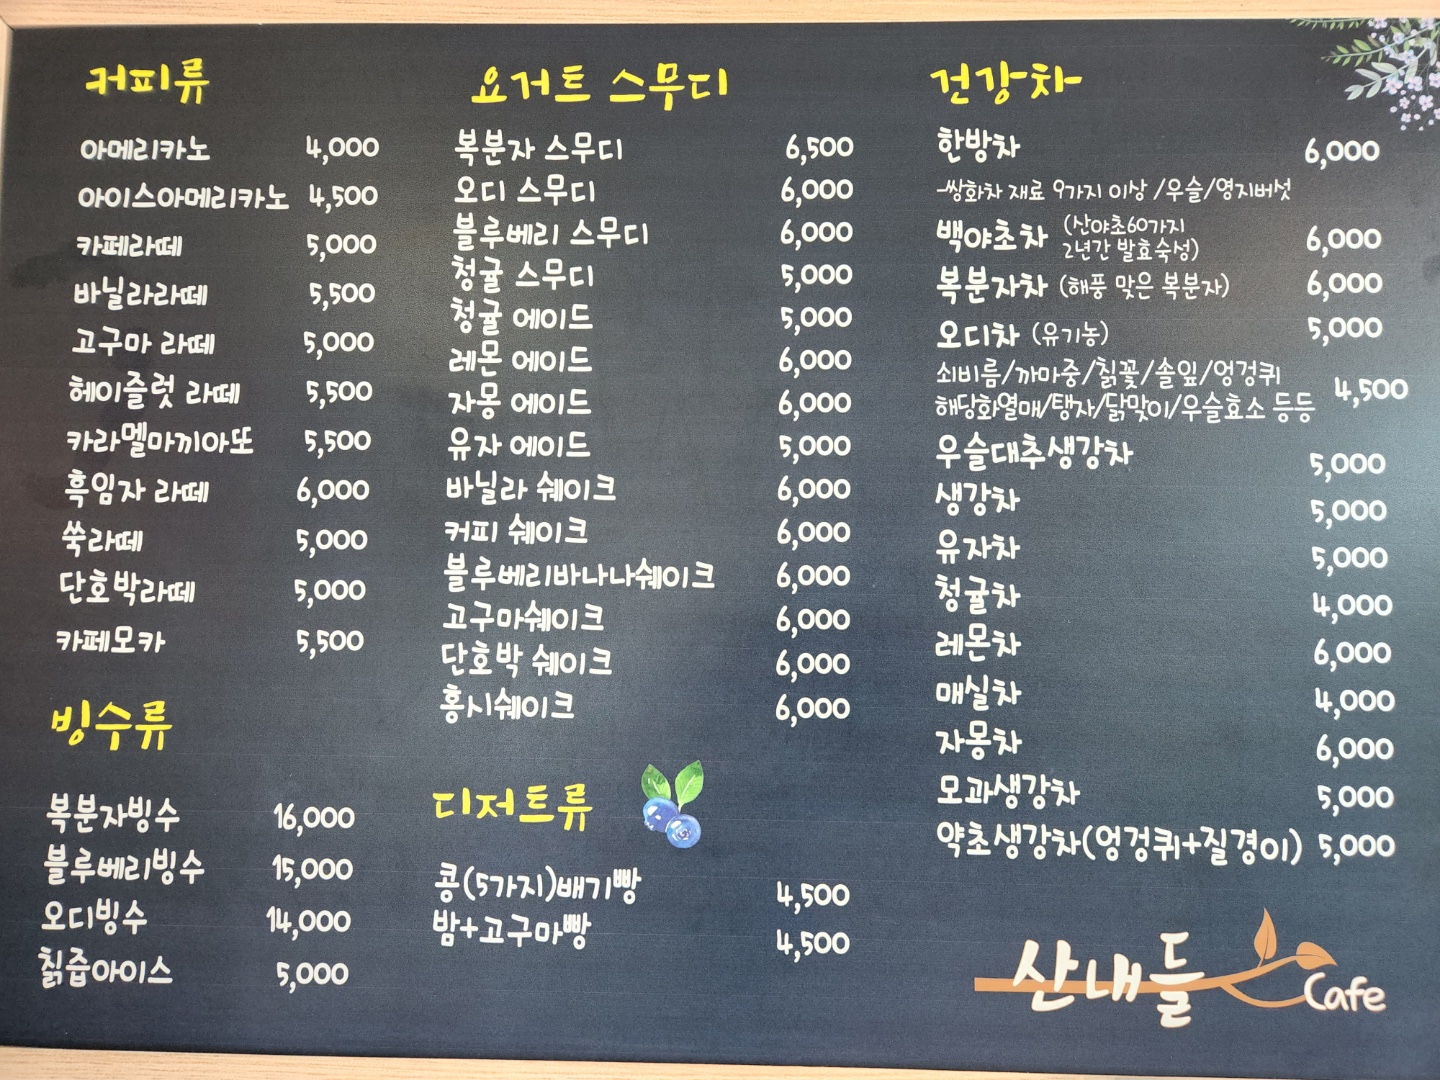 커피류
아메리카노 4,000
아이스아메리카노 4,500
카페라떼 5,000
바닐라라떼 5,500
고구마 라떼 5,000
헤이즐럿 라떼 5,500
카라멜마끼아또 5,500
흑임자 라떼 6,000
쑥라떼 5,000
단호박라떼 5,000
카페모카 5,500
빙수류
복분자빙수 16,000
블루베리빙수 15,000
오디빙수 14,000
칡즙아이스 5,000
요거트 스무디
복분자 스무디 6,500
오디 스무디 6,000
블루베리 스무디 6,000
청귤 스무디 5,000
청귤 에이드 5,000
레몬 에이드 6,000
자몽 에이드 6,000
유자 에이드 5,000
바닐라 쉐이크 6,000
커피 쉐이크 6,000
블루베리바나나쉐이크 6,000
고구마쉐이크 6,000
단호박 쉐이크 6,000
홍시쉐이크 6,000
디저트류
콩(5가지)배기빵 4,500
밤+고구마빵 4,500
건강차
한방차 6,000
-쌍화차 재료 9가지 이상 /우슬/영지버섯
백야초차 (산야초60가지
2년간 발효숙성) 6,000
복분자차 (해풍 맞은 복분자) 6,000
오디차 (유기농) 5,000
쇠비름/까마중/칡꽃/솔잎/엉겅퀴
해당화열매/탱자/닭맞이/우슬효소 등등 4,500
우슬대추생강차 5,000
생강차 5,000
유자차 5,000
청귤차 4,000
레몬차 6,000
매실차 4,000
자몽차 6,000
모과생강차 5,000
약초생강차(엉겅퀴+질경이) 5,000
산내들 Cafe